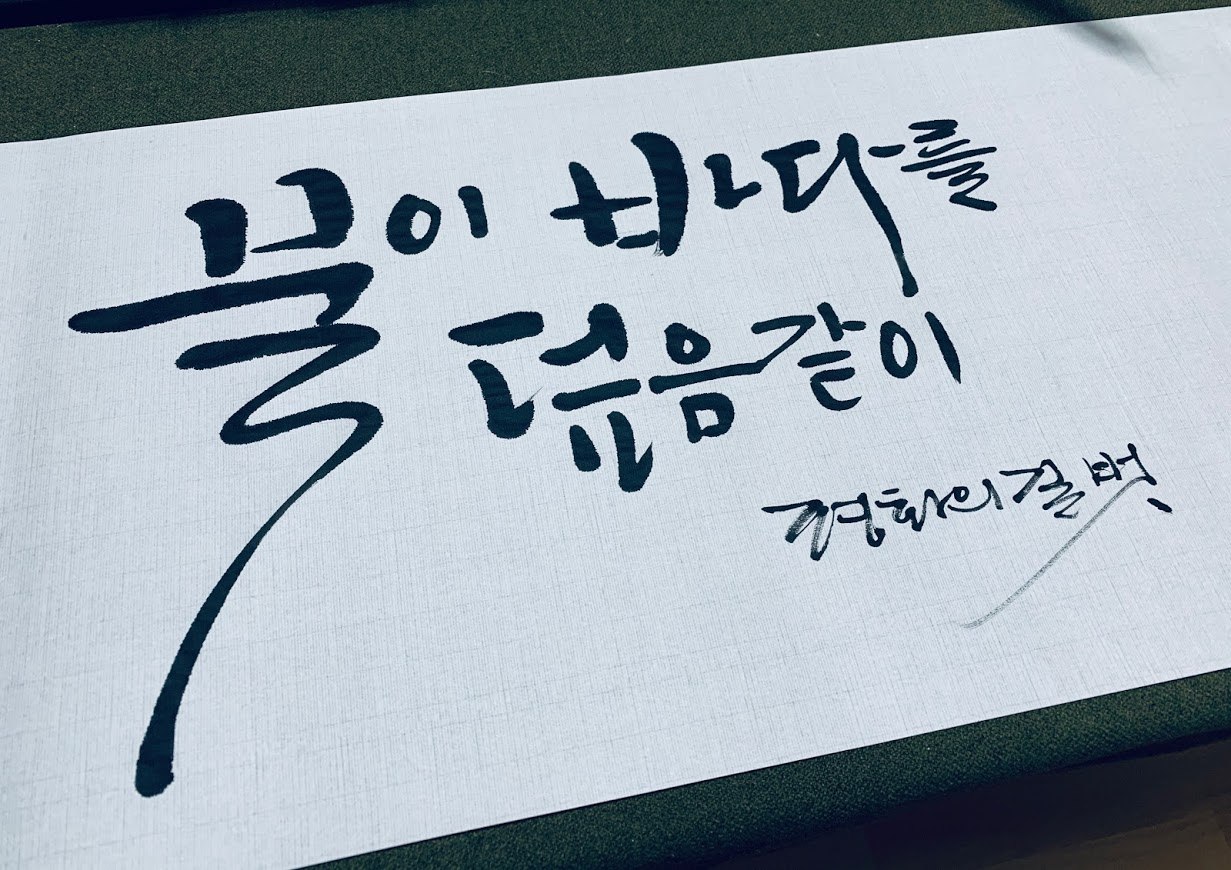 물이 바다를
덮음같이
평화의길벗